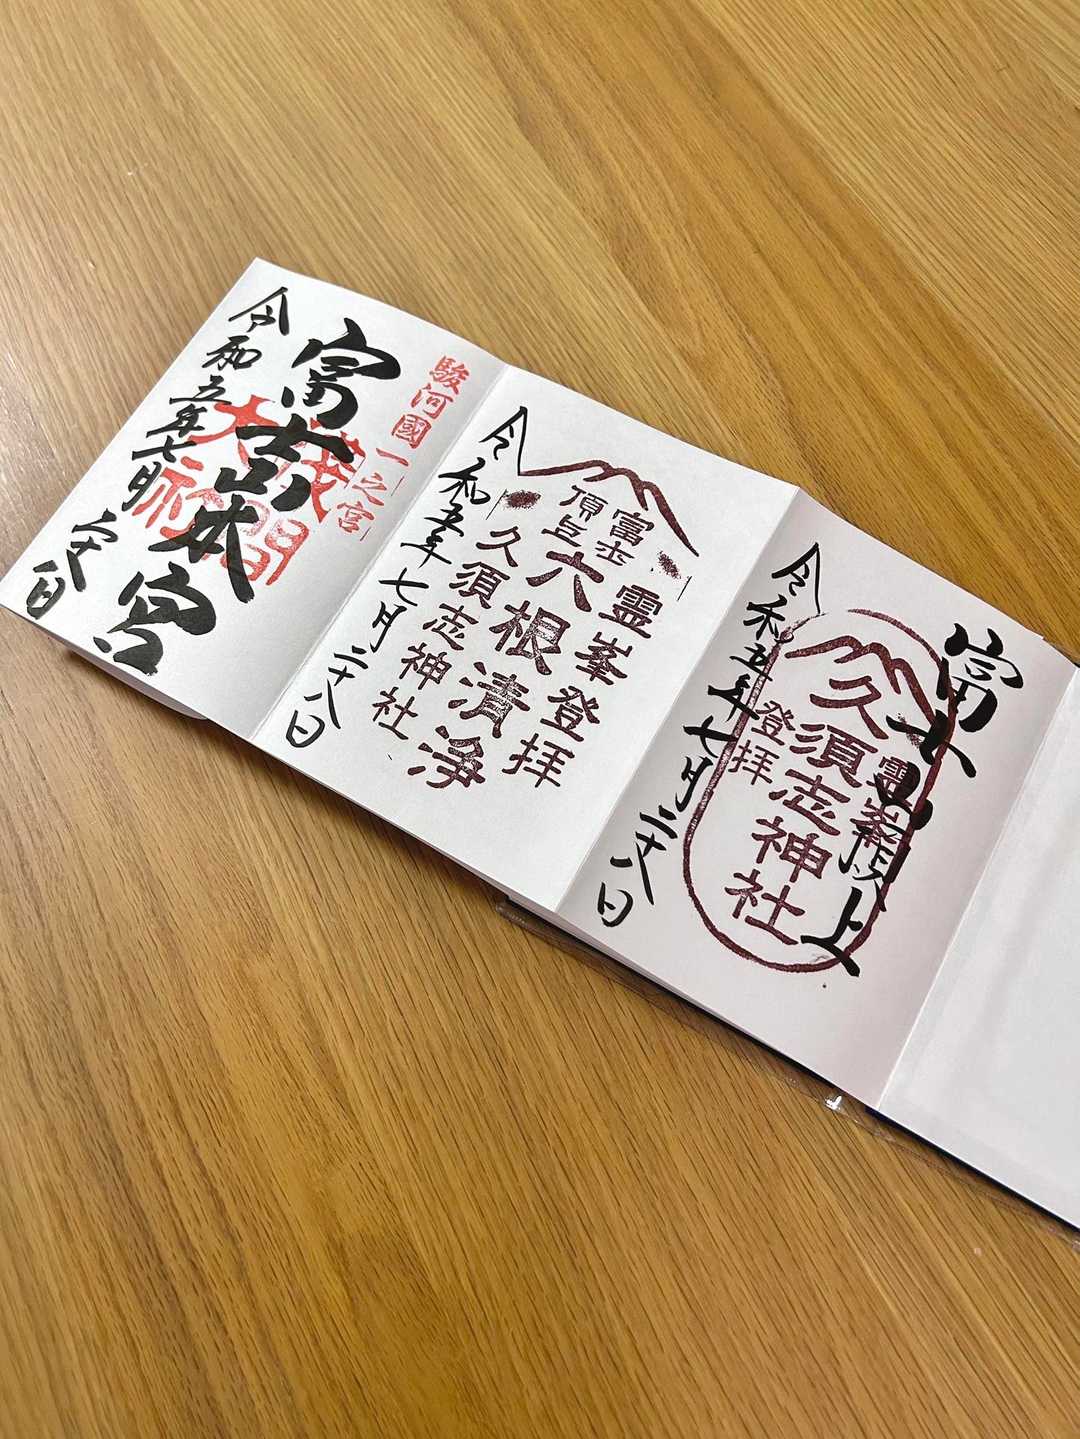 富士山頂上
霊峰登拝
久須志神社
令和五年七月二十八日
霊峯登拝
富士頂上
六根清浄
久須志神社
令和五年七月二十八日
駿河國一之宮
富士山本宮
浅間大社
令和五年七月二十八日